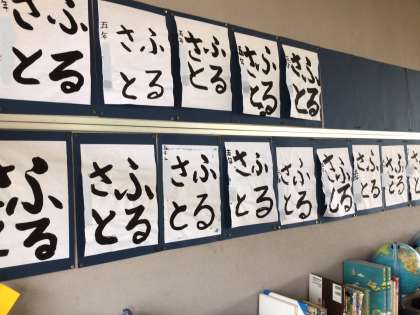 ふる
さと
年
ふる
さと
五年
ふる
さと
五年
ふる
さと
ふる
さと
ふる
さと
ふる
さと
ふる
さと
ふる
さと
五年
ふる
さと
ふる
さと
ふる
さと
ふる
さと